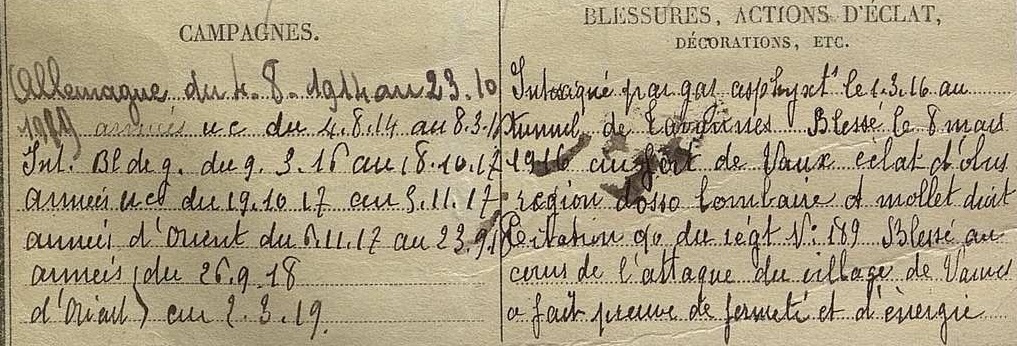 CAMPAGNES.
Allemagne du 4.8.1914 au 23.10
1919 armées n e du 4.8.14 au 8.3.16
Int. Bld e g. du 9.3.16 au 18.10.17
armées n e du 19.10.17 au 5.11.17
armées d'Orient du 6.11.17 au 23.9.18
armées du 26.9.18
d'Orient) au 2.3.19.
BLESSURES, ACTIONS D'ÉCLAT,
DÉCORATIONS, ETC.
Intoxiqué par gas asphyxts le 1.3.16 au
tunnel de Tavannes Blessé le 8 mars
1916 au fort de Vaux éclat d'obus
région dosso lombaire et mollet droit
Citation go du régt No 189 Blessé au
cours de l'attaque du village de Vaux
a fait preuve de fermeté et d'énergie